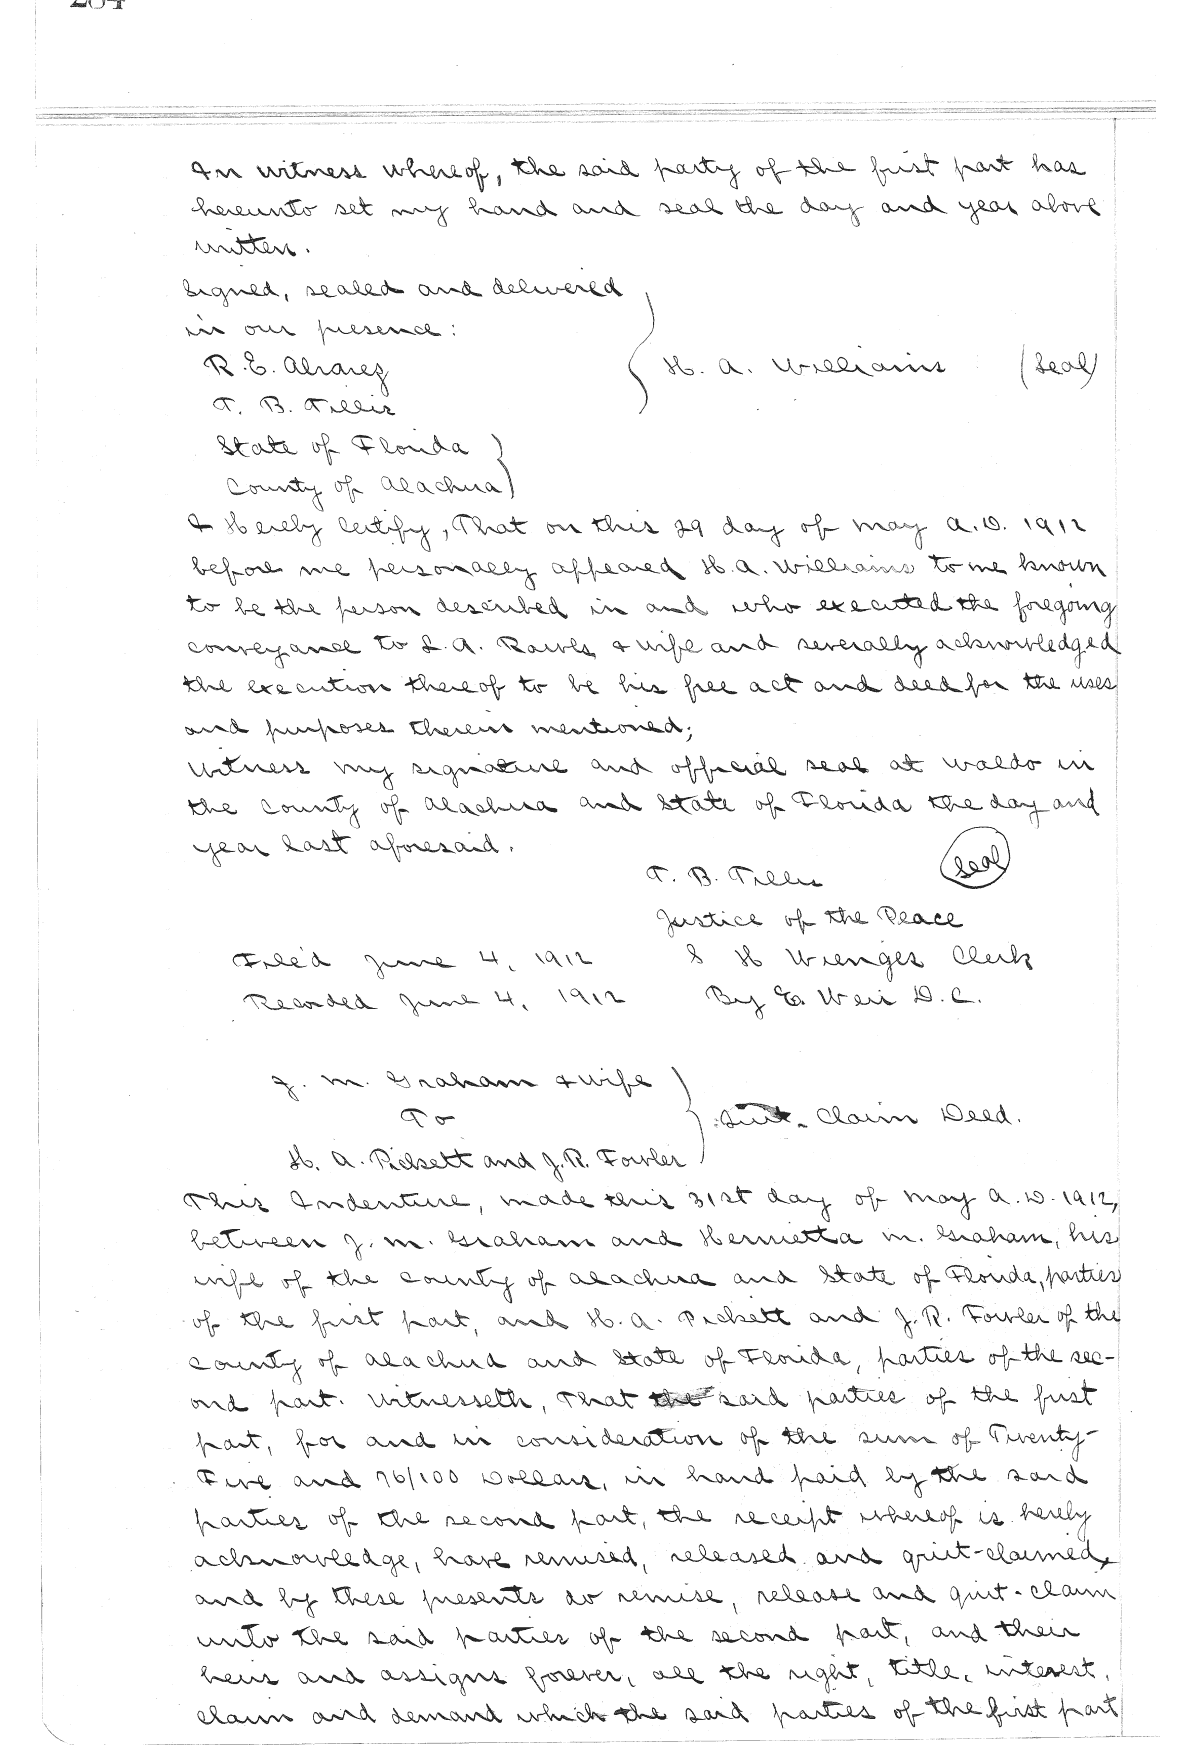 In witness whereof, the said party of the first part has
hereunto set my hand and seal the day and year above
written.
Signed, sealed and delivered
in our presence:
R. E. Alvarez
H. A. Williams (Seal)
T. B. Tillis
State of Florida
County of Alachua
I Hereby Certify, That on this 29 day of May A.D. 1912
before me personally appeared H. A. Williams to me known
to be the person described in and who executed the foregoing
conveyance to L. A. Rawls & wife and severally acknowledged
the execution thereof to be his free act and deed for the uses
and purposes therein mentioned;
Witness my signature and official seal at Waldo in
the County of Alachua and State of Florida the day and
year last aforesaid.
T. B. Tillis (Seal)
Justice of the Peace
Filed June 4, 1912 S H Wienges Clerk
Recorded June 4, 1912 By E. Weir D.C.
J. M. Graham & wife
To Quit-Claim Deed.
H. A. Pickett and J. R. Fowler
This Indenture, made this 31st day of May A.D. 1912,
between J. M. Graham and Henrietta M. Graham, his
wife of the County of Alachua and State of Florida, parties
of the first part, and H. A. Pickett and J. R. Fowler of the
County of Alachua and State of Florida, parties of the sec-
ond part. Witnesseth, That the said parties of the first
part, for and in consideration of the sum of Twenty-
Five and 76/100 Dollars, in hand paid by the said
parties of the second part, the receipt whereof is hereby
acknowledge, have remised, released and quit-claimed,
and by these presents do remise, release and quit-claim
unto the said parties of the second part, and their
heirs and assigns forever, all the right, title, interest,
claim and demand which the said parties of the first part